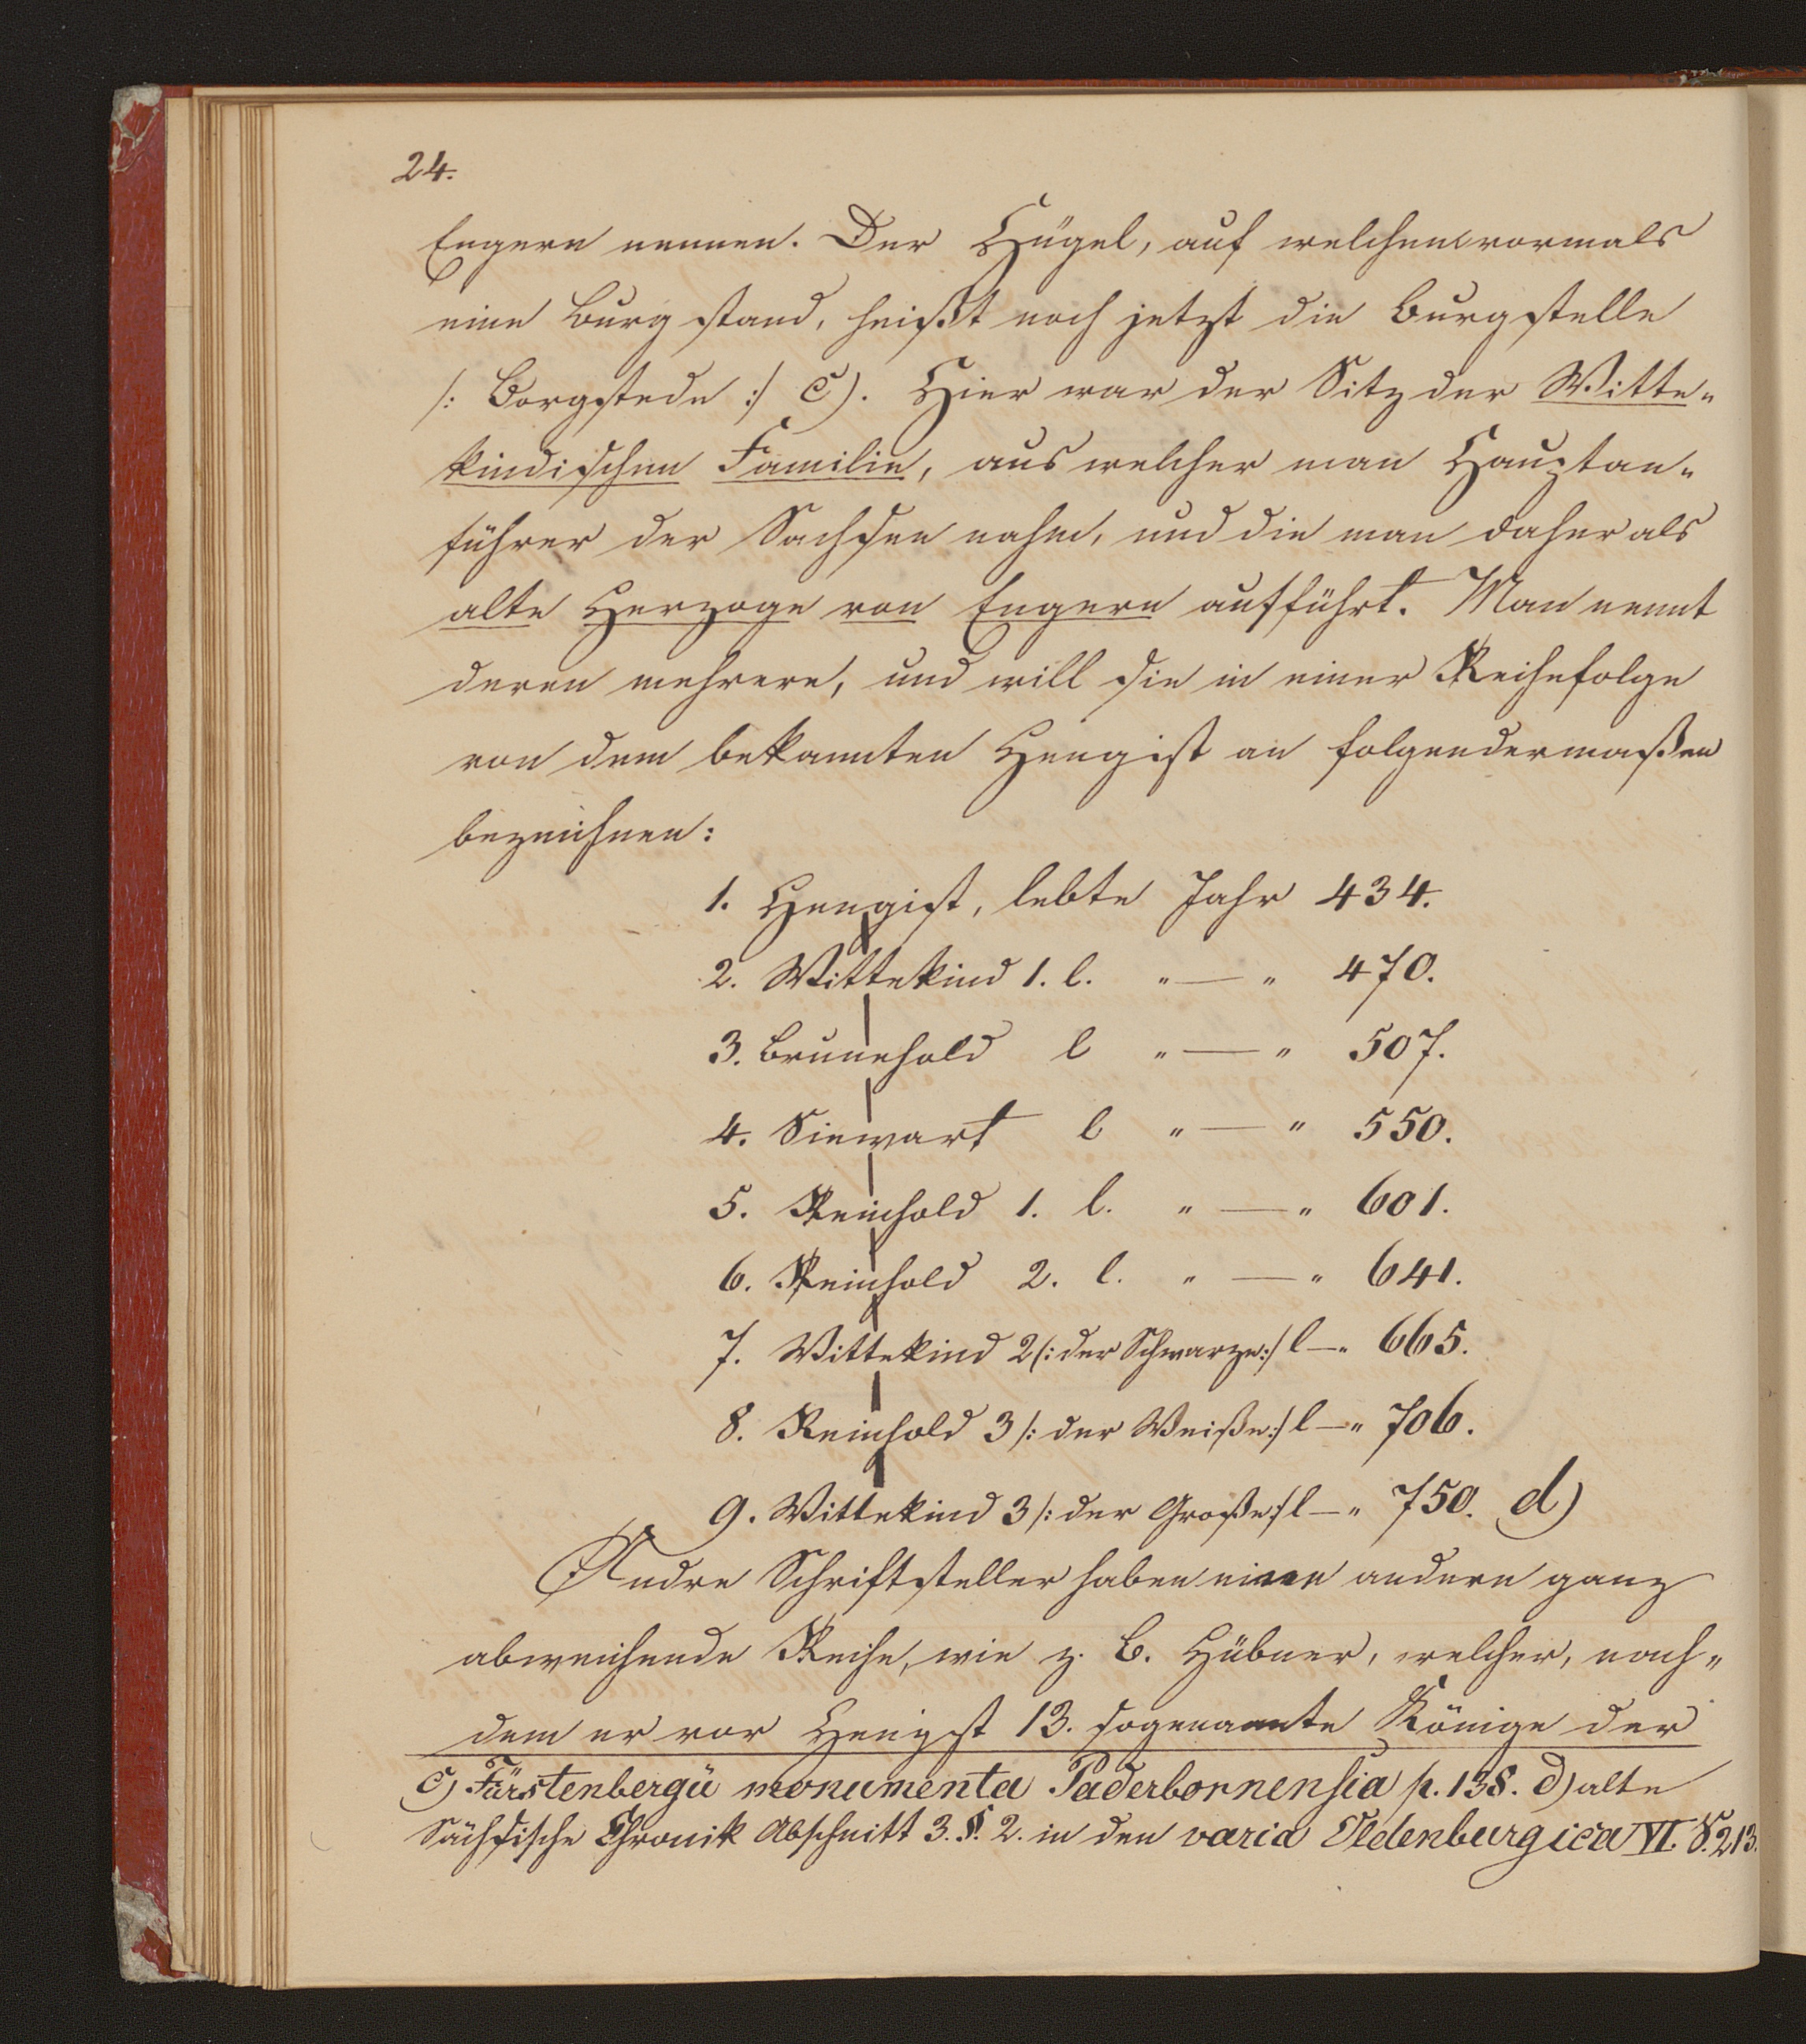 24.
Engern nennen. Der Hügel, auf welchem vormals
eine Burg stand, heißt noch jetzt die Burgstelle
/: Borgstede :/ c). Hier war der Sitz der Witte„
kindischen Familie, aus welcher man Hauptan„
führer der Sachsen nahm, und die man daher als
alte Herzoge von Engern aufführt. Man nennt
deren mehrere, und will sie in einer Reihefolge
von dem bekannten Hengist an folgendermaßen
bezeichnen:
1. Hengist, lebte Jahr 434.
2. Wittekind 1. l. „ — „ 470.
3. Brunehold l „ — „ 507.
4. Siewart l „ — „ 550.
5. Reinhold 1. l. „ — „ 601.
6. Reinhold 2. l. „ — „ 641.
7. Wittekind 2 /: der Schwarze :/ l — „ 665.
8. Reinhold 3 /: der Weiße :/ l — „ 706.
9. Wittekind 3 /: der Große :/ l — „ 750. d)
Andre Schriftsteller haben einen andern ganz
abweichende Reihe, wie z. B. Hübner, welcher, nach„
dem er vor Hengst 13. sogenannte Könige der
c) Fürstenbergii monumenta Paderbornensia p. 138. d) alte
Sächsische Chronik Abschnitt 3. §. 2. in den varia Oldenburgica VI. S. 213.